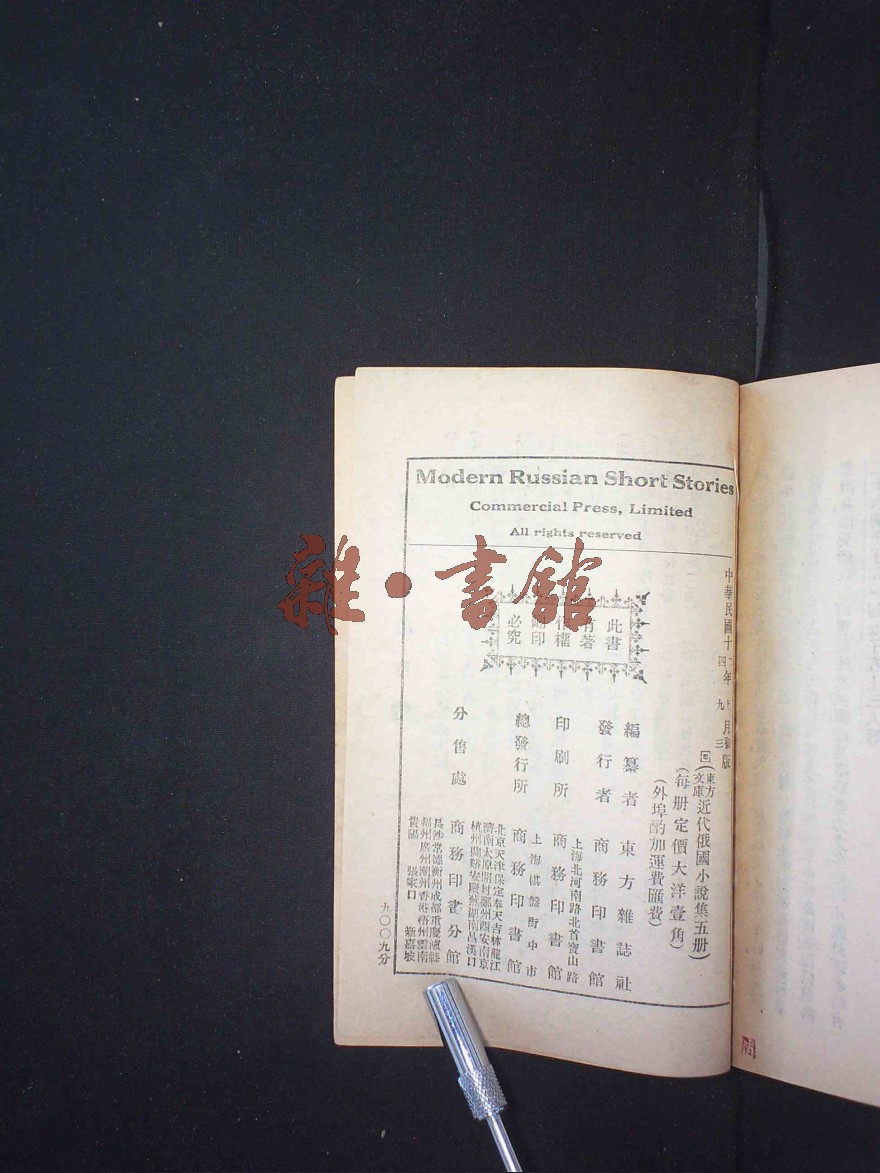 Modern Russian Short Stories
Commercial Press, Limited
All rights reserved
中華民國十二年七月初版
四年九 三
回(東方文庫)近代俄國小說集五册)
(每册定價大洋壹角)
(外埠酌加運費匯費)
此書
有著
作權
翻印
必究
編纂者 東方雜誌社
發行者 商務印書館
上海北河南路北首寶山路
印刷所 商務印書館
上海棋盤街中市
總發行所 商務印書館
北京天津保定奉天吉林龍江
濟南太原開封鄭州西安南京
杭州蘭谿安慶蕪湖南昌漢口
分售處 商務印書分館
長沙常德衡州成都重慶瀘縣
福州廣州潮州香港梧州雲南
貴陽 張家口 新嘉坡
九〇〇九分
雜·書館